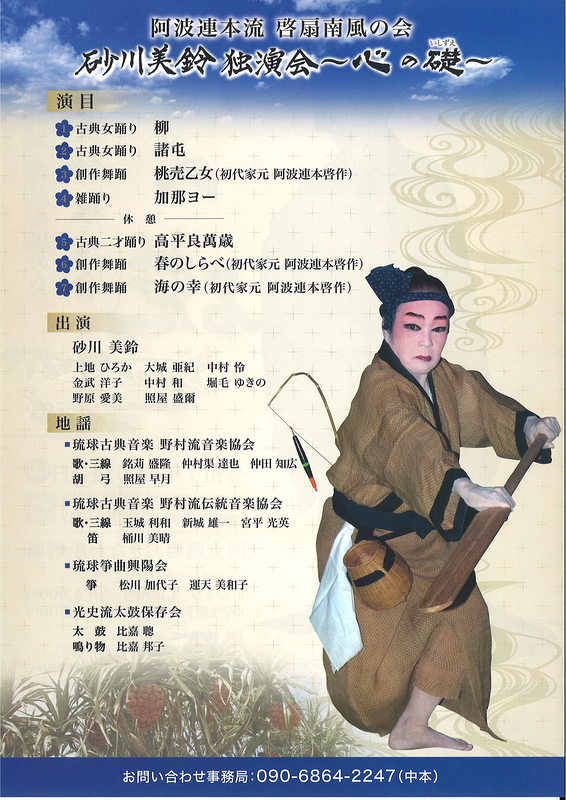 阿波連本流 啓扇南風の会
いしずえ
砂川美鈴 独演会～心の礎～
演目
1 古典女踊り 柳
2 古典女踊り 諸屯
3 創作舞踊 桃売乙女(初代家元 阿波連本啓作)
4 雑踊り 加那ヨー
休 憩
5 古典二才踊り 高平良萬歳
6 創作舞踊 春のしらべ(初代家元 阿波連本啓作)
7 創作舞踊 海の幸(初代家元 阿波連本啓作)
出演
砂川 美鈴
上地 ひろか 大城 亜紀 中村 怜
金武 洋子 中村 和 堀毛 ゆきの
野原 愛美 照屋 盛爾
地謡
■琉球古典音楽 野村流音楽協会
歌・三線 銘苅 盛隆 仲村渠 達也 仲田 知広
胡 弓 照屋 早月
■琉球古典音楽 野村流伝統音楽協会
歌・三線 玉城 利和 新城 雄一 宮平 光英
笛 桶川 美晴
■琉球箏曲興陽会
箏 松川 加代子 運天 美和子
■光史流太鼓保存会
太 鼓 比嘉 聰
鳴り物 比嘉 邦子
お問い合わせ事務局:090-6864-2247(中本)